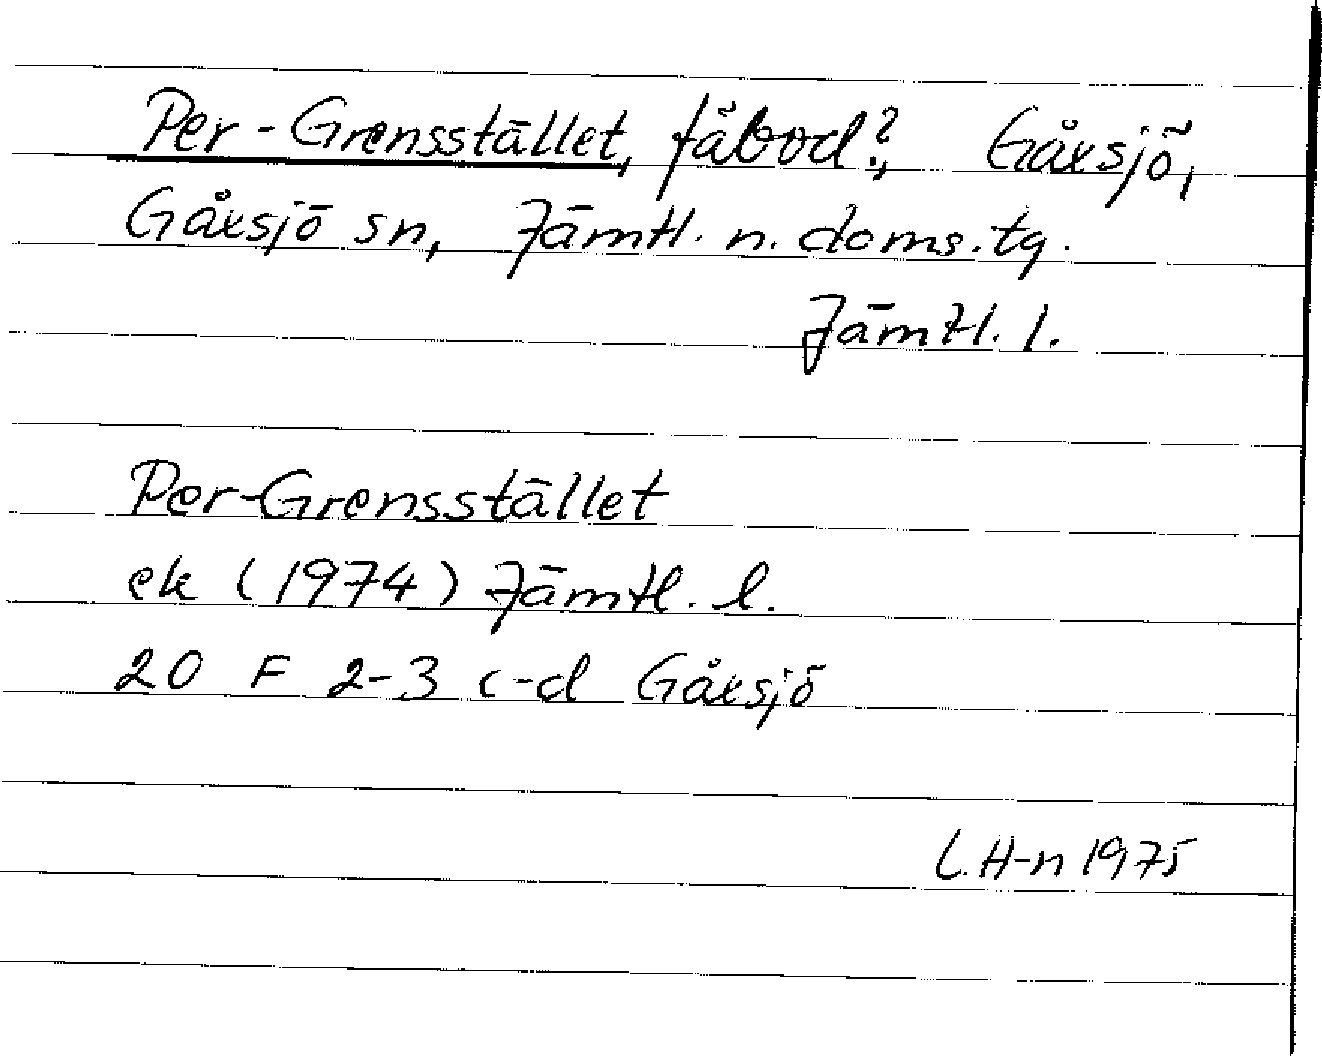 Per-Grensstället, fäbod?, Gåxsjö,
Gåxsjö sn, Jämtl. n. doms.tg.
Jämtl. l.
Per-Grensstället
ek (1974) Jämtl. l.
20 F 2-3 c-d Gåxsjö
L.H-n 1975